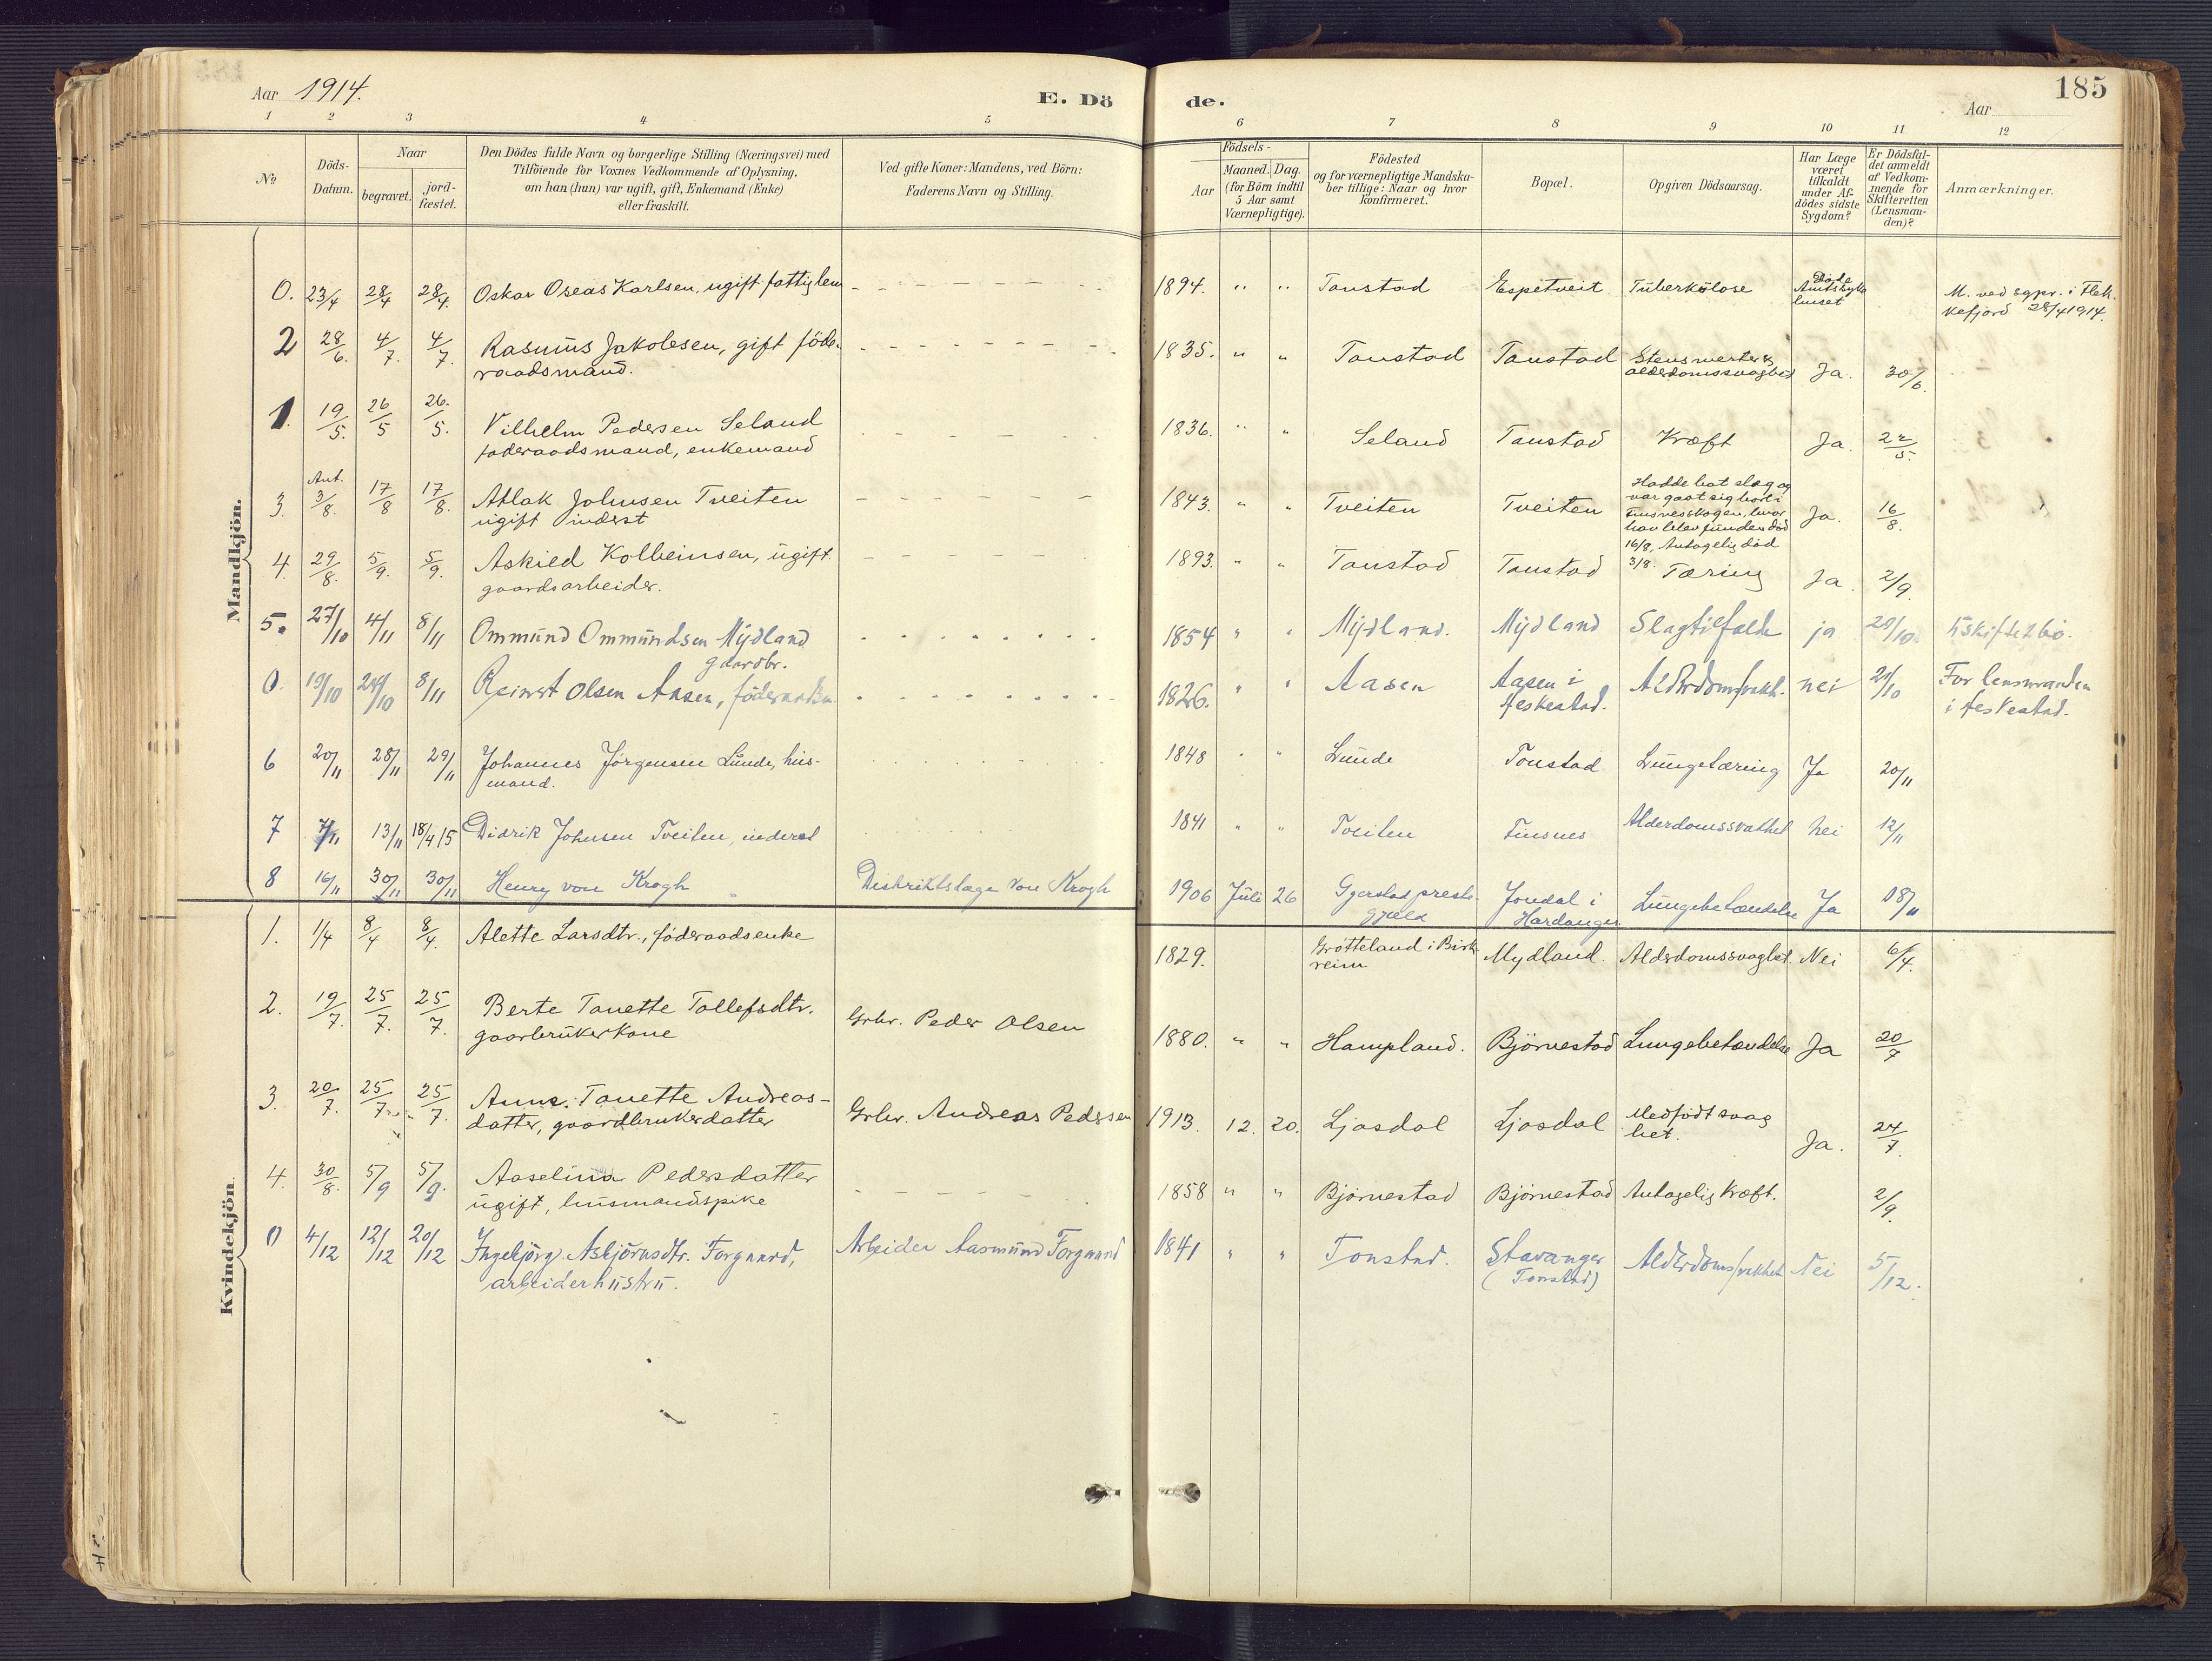 Aar 1914.
E. Döde.
185
Aar
1 2 3 4 5 6 7 8 9 10 11 12
No.
Döds-Datum.
Naar
begravet.
jord-fæstet.
Den Dödes fulde Navn og borgerlige Stilling (Næringsvei) med
Tilföiende for Voxnes Vedkommende af Oplysning,
om han (hun) var ugift, gift, Enkemand (Enke)
eller fraskilt.
Ved gifte Koner: Mandens, ved Börn:
Faderens Navn og Stilling.
Födsels-
Aar
Maaned. Dag.
(for Börn indtil
5 Aar samt
Værnepligtige).
Födested
og for værnepligtige Mandska-
ber tillige: Naar og hvor
konfirmeret.
Bopæl.
Opgiven Dödsaarsag.
Har Læge
været
tilkaldt
under Af-
dödes sidste
Sygdom?
Er Dödsfal-
det anmeldt
af Vedkom-
mende for
Skifteretten
(Lensman-
den)?
Anmærkninger.
Mandkjön.
0. 23/4 28/4 28/4 Oskar Oseas Karlsen, ugift fattiglem 1894. " " Tonstad Espetveit Tuberkulose Døde Amtssyke huset M. ved sgpr. i Flek-
kefjord 28/4 1914.
2 28/6. 4/7. 4/7. Rasmus Jakobsen, gift föde- 1835. " " Tonstad Tonstad Stensmerter & Ja. 30/6.
raadsmand. alderdomssvaghed
1. 19/5. 26/5 26/5. Vilhelm Pedersen Seland 1836. " " Seland Tonstad Kræft Ja. 22/5.
föderaadsmand, enkemand
3. Ant. 3/8. 17/8 17/8. Atlak Johnsen Tveiten 1843. " " Tveiten Tveiten Hadde hat slag og Ja. 16/8.
ugift inderst var gaat sig bort i
Finsnesskogen, hvor
han blev funden død
16/8. Antagelig død
3/8.
4. 29/8. 5/9. 5/9. Askild Kolbeinsen, ugift 1893. " " Tonstad Tonstad Tæring Ja. 2/9.
gaardsarbeider.
5. 27/10 4/11 8/11 Ommund Ommundsen Mydland 1854 " " Mydland. Mydland Slagtilfælde ja 29/10. Uskiftet bo.
gaardbr.
0. 19/10 24/10 8/11 Reinert Olsen Aasen, föderaadsm. 1826. " " Aasen Aasen i Alderdomssvakh. nei 21/10 For lensmanden
Heskestad. i Heskestad.
6 20/11 28/11 29/11 Johannes Jörgensen Lunde, hus- 1848 " " Lunde Tonstad Lungetæring Ja 20/11
mand.
7 7/11 13/11 18/4 15 Didrik Johnsen Tveiten, inderst 1841 " " Tveiten Finsnes Alderdomssvakhet Nei 12/11
8 16/11 30/11 30/11 Henry von Krogh Distriktslæge von Krogh 1906 Juli 26 Gjerstad preste- Jondal i Lungebetændelse Ja 18/11
gjeld Hardanger
Kvindekjön.
1. 1/4 8/4 8/4. Alette Larsdtr., föderaadsenke 1829. Grötteland i Birk- Mydland. Alderdomssvaghet. Nei 6/4.
reim
2. 19/7. 25/7. 25/7. Berte Tonette Tollefsdtr. Grbr. Peder Olsen 1880. " " Hampland. Björnestad Lungebetændelse Ja 20/7
gaarbrukerkone
3. 20/7. 25/7. 25/7. Anna Tonette Andreas- Grbr. Andreas Pedersen 1913. 12. 20. Ljosdal Ljosdal Medfödt svag- Ja. 24/7.
datter, gaardbrukerdatter het.
4. 30/8. 5/9 5/9. Aaselina Pedersdatter 1858 " " Björnestad Björnestad Antagelig Kræft. 2/9.
ugift, husmandspike
0 4/12 12/12 20/12 Ingebjörg Asbjörnsdtr. Forgaard, Arbeider Aasmund Forgaard 1841 " " Tonstad. Stavanger Alderdomssvakhet Nei 5/12.
arbeiderhustru. (Tonstad)